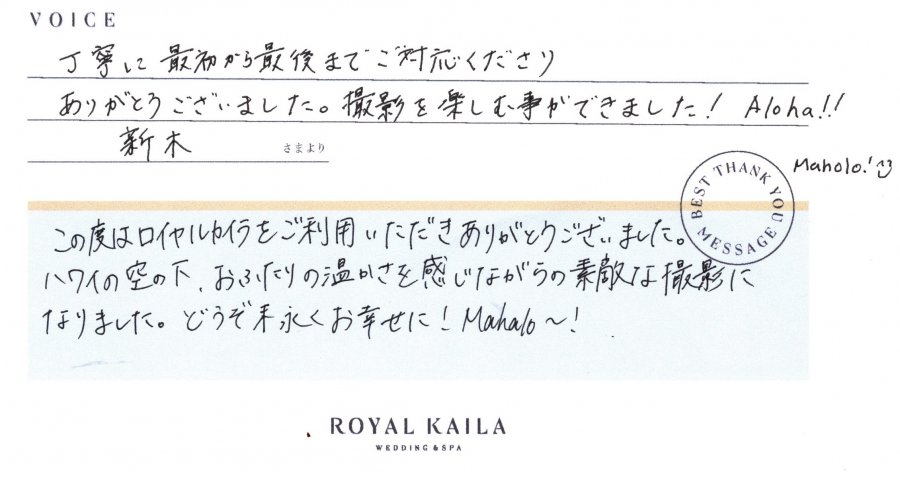 VOICE
丁寧に最初から最後までご対応くださり
ありがとうございました。撮影を楽しむ事ができました! Aloha!!
新木 さまより
Maholo!
BEST THANK YOU MESSAGE
この度はロイヤルカイラをご利用いただきありがとうございました。
ハワイの空の下、おふたりの温かさを感じながらの素敵な撮影に
なりました。どうぞ末永くお幸せに! Mahalo〜!
ROYAL KAILA
WEDDING & SPA